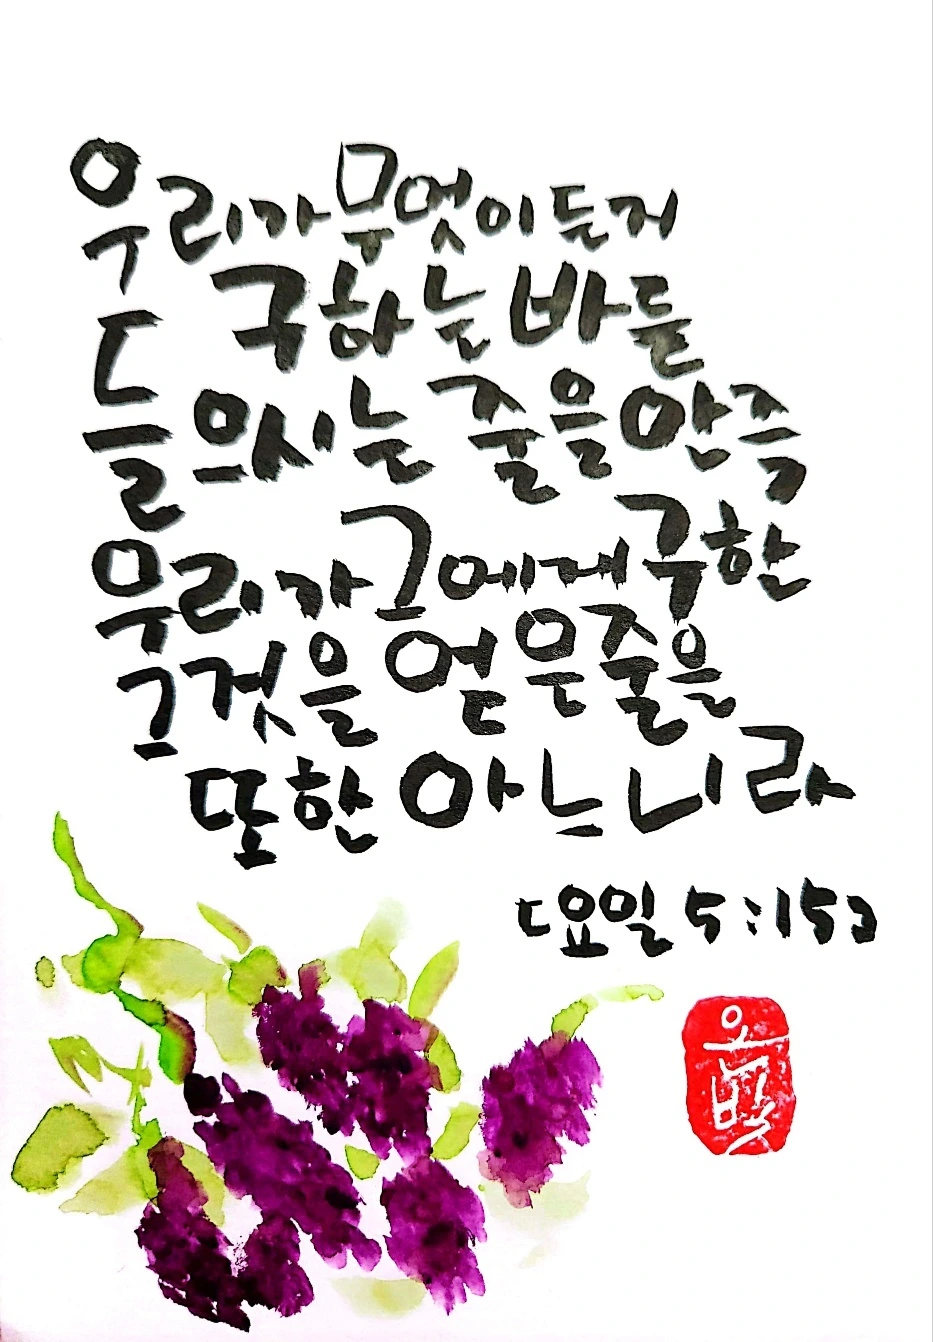 우리가 무엇이든지
구하는 바를
들으시는 줄을 안즉
우리가 그에게 구한
그것을 얻은줄을
또한 아느니라
[요일 5:15]
은빛